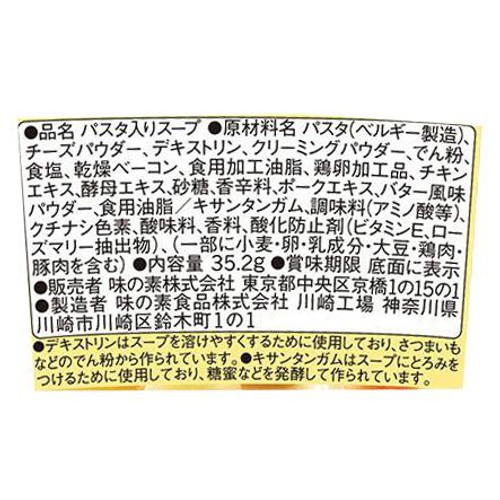 ●品名 パスタ入りスープ ●原材料名 パスタ(ベルギー製造)、
チーズパウダー、デキストリン、クリーミングパウダー、でん粉、
食塩、乾燥ベーコン、食用加工油脂、鶏卵加工品、チキン
エキス、酵母エキス、砂糖、香辛料、ポークエキス、バター風味
パウダー、食用油脂／キサンタンガム、調味料(アミノ酸等)、
クチナシ色素、酸味料、香料、酸化防止剤(ビタミンE、ロー
ズマリー抽出物)、(一部に小麦・卵・乳成分・大豆・鶏肉・
豚肉を含む) ●内容量 35.2g ●賞味期限 底面に表示
●販売者 味の素株式会社 東京都中央区京橋1の15の1
●製造者 味の素食品株式会社 川崎工場 神奈川県
川崎市川崎区鈴木町1の1
●デキストリンはスープを溶けやすくするために使用しており、さつまいも
などのでん粉から作られています。●キサンタンガムはスープにとろみを
つけるために使用しており、糖蜜などを発酵して作られています。